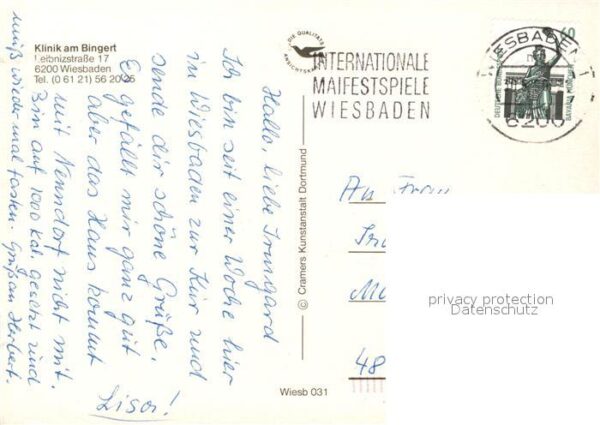 Klinik am Bingert
Leibnizstraße 17
6200 Wiesbaden
Tel. (0 61 21) 56 20 25
DIE QUALITÄTS
ANSICHTSKARTE
INTERNATIONALE
MAIFESTSPIELE
WIESBADEN
WIESBADEN 1
6200
60
Hallo, liebe Irmgard
Ich bin seit einer Woche hier
in Wiesbaden zur Kur und
sende dir schöne Grüße.
Es gefällt mir ganz gut
aber das Haus kommt
mit Nenndorf nicht mit.
Bin auf 1000 kal. gesetzt und
muß wieder mal fasten. Gruß an Herbert.
An Frau
48
© Cramers Kunstanstalt Dortmund
Wiesb 031
privacy protection
Datenschutz